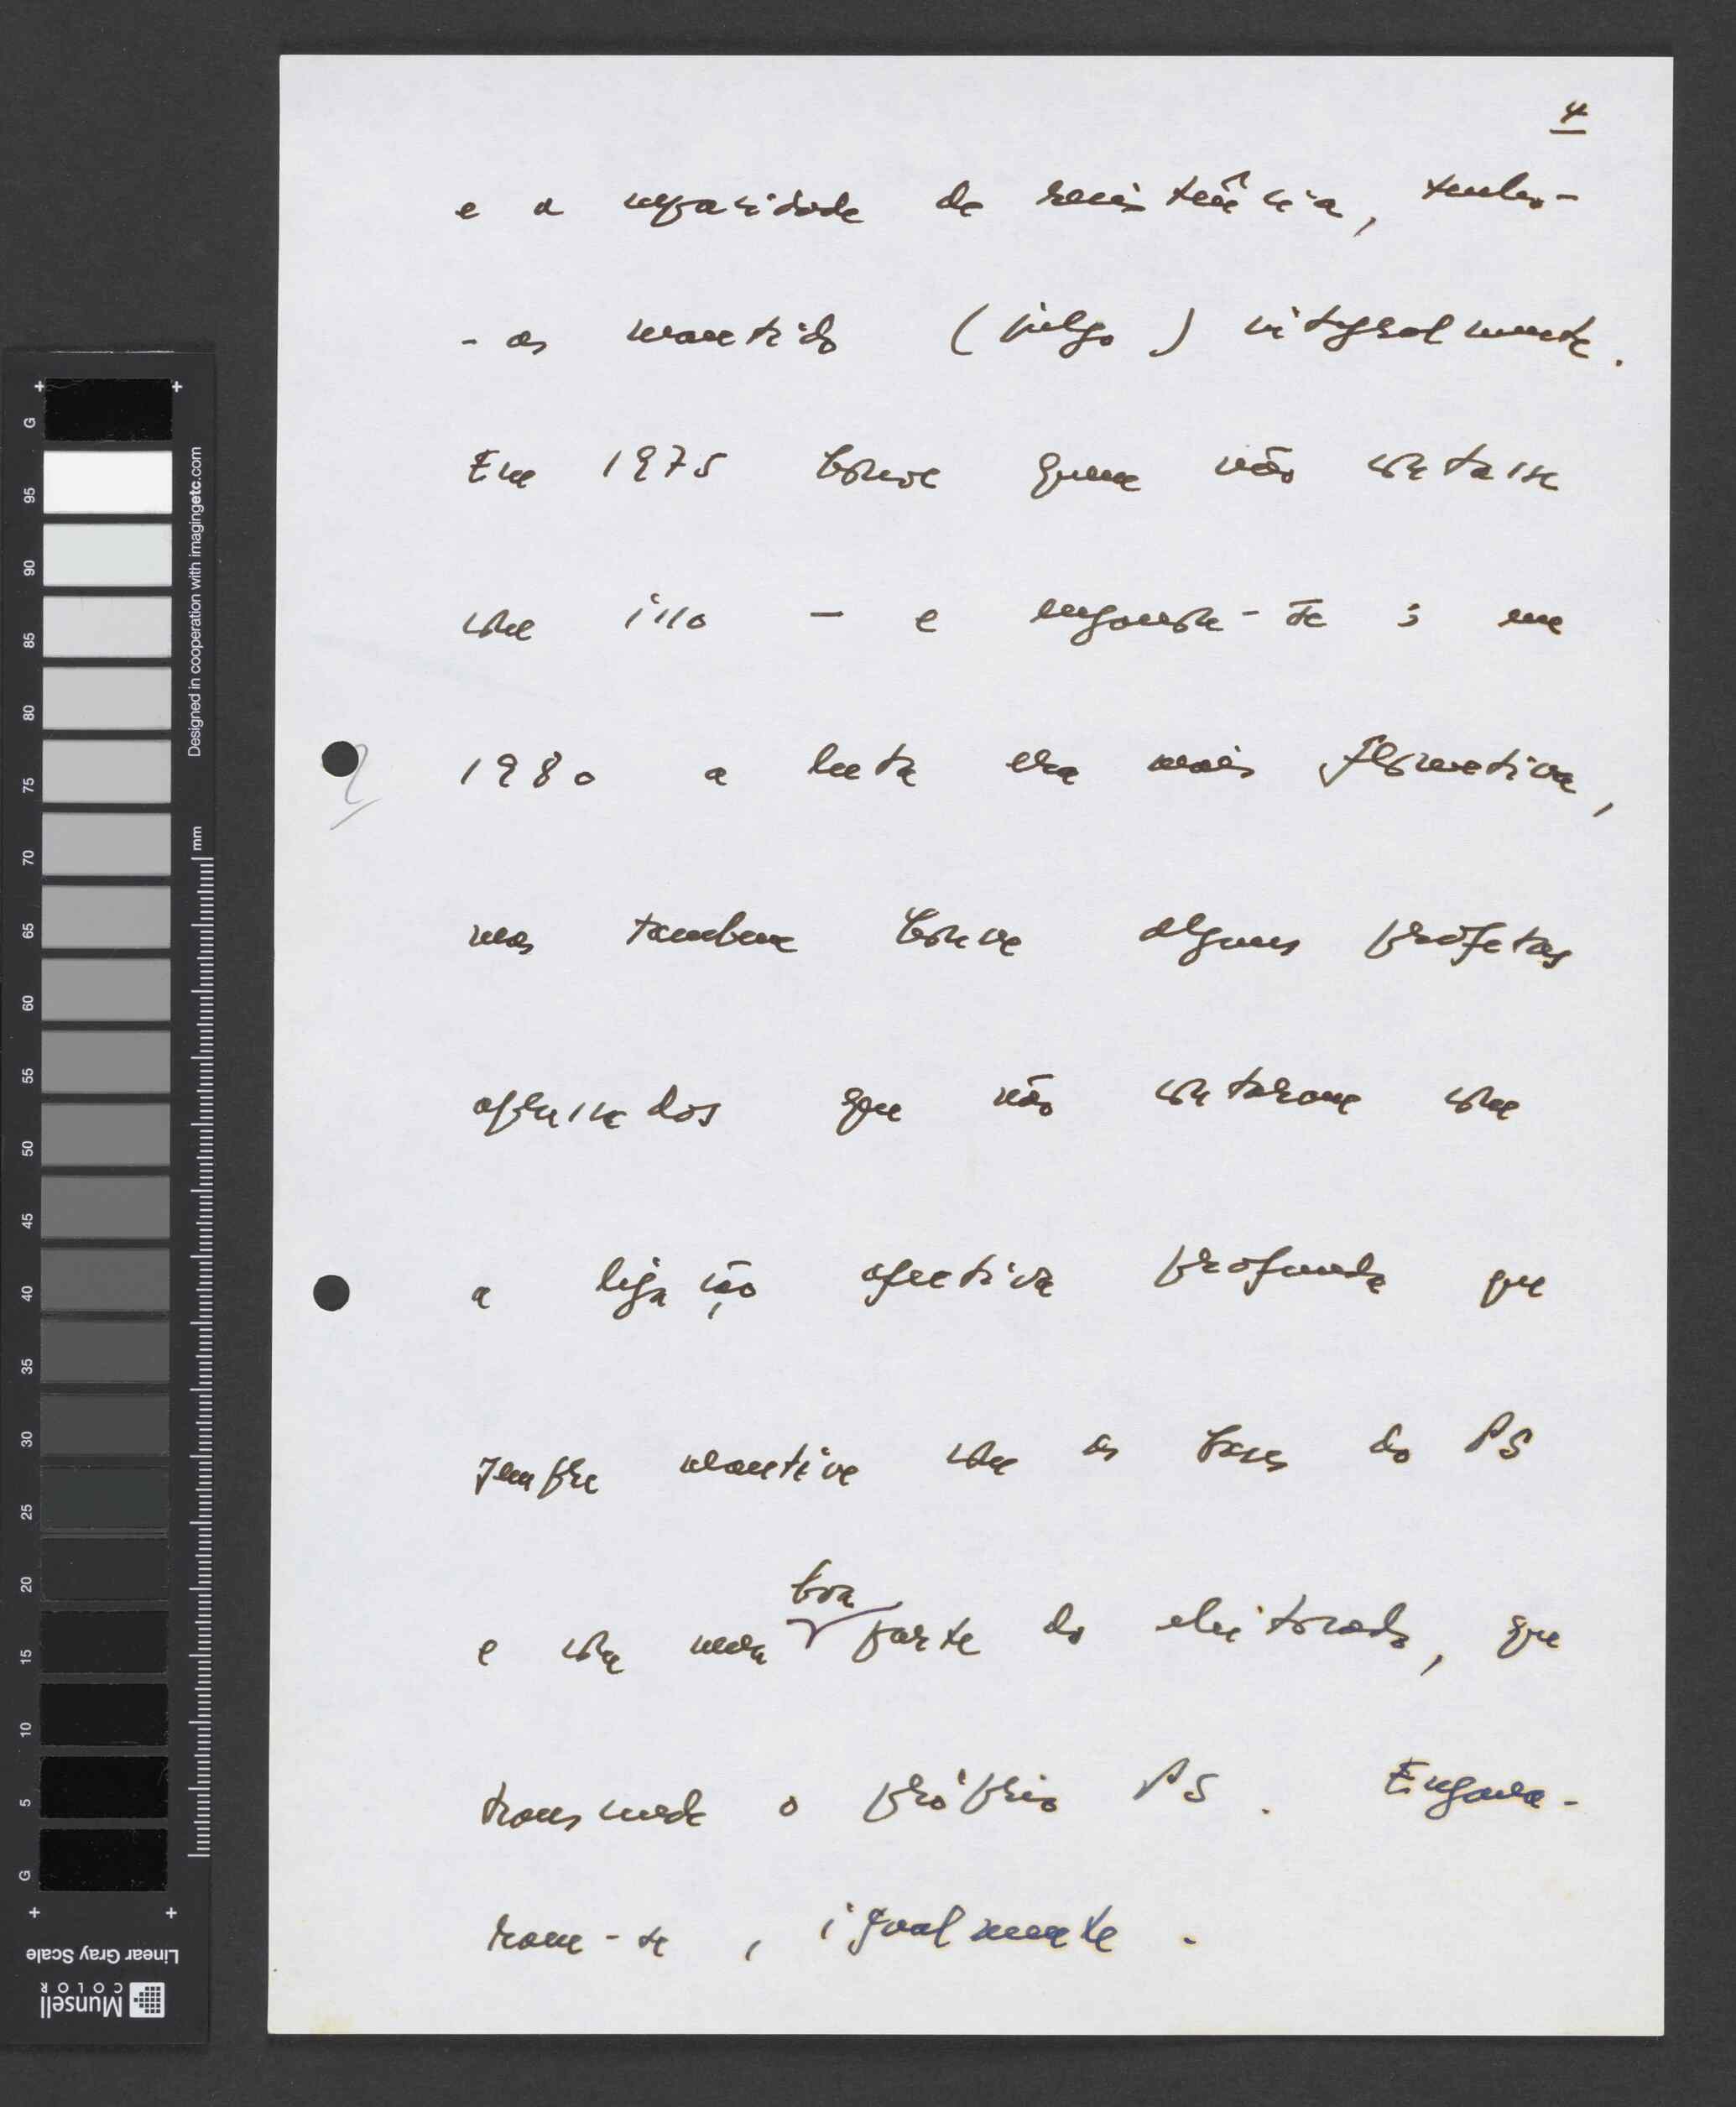 4
e a capacidade de resistência, tenho-
-as mantido (julgo) integralmente.
Em 1975 houve quem não contasse
com isso – e enganou-se; em
1980 a luta era mais
mas tambem houve alguns profetas
apressados que não contaram com
a ligação afectiva profunda que
sempre mantive com as bases do PS
e com uma boa parte do eleitorado, que
transcende o próprio PS. Engana-
ram-se, igualmente.
G 95 90 85 80 75 70 65 60 55 50 45 40 35 30 25 20 15 10 5 G
Designed in cooperation with imagingetc.com
mm
Linear Gray Scale
Munsell
COLOR